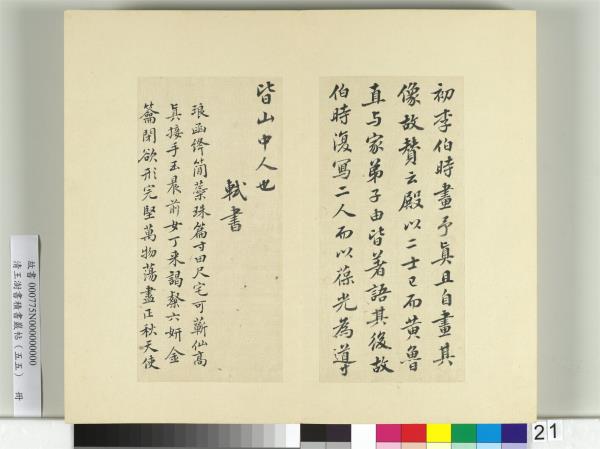 初李伯時畫予真且自畫其
像故贊云殿以二士已而黃魯
直与家弟子由皆著語其後故
伯時復寫二人而以葆光為導
皆山中人也
軾書
琅函絳簡蘂珠篇寸田尺宅可蘄仙高
真接手玉晨前女丁來謁粲六妍金
籥閉欲形完堅萬物蕩盡正秋天使
故書 000775N000000000
清王澍書積書巖帖(五五) 冊
21